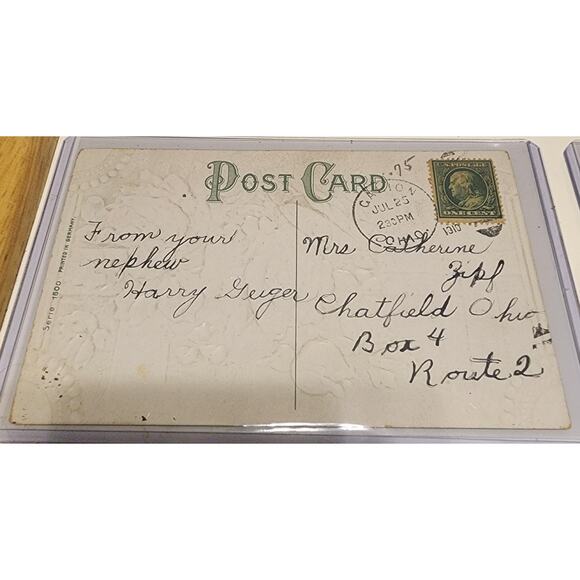 .75
POST CARD
U.S. POSTAGE
ONE CENT
CANTON
JUL 25
2 30 PM
OHIO
1910
From your
nephew
Harry Geiger
Mrs Catherine
Zipf
Chatfield Ohio
Box 4
Route 2
Serie 1600 PRINTED IN GERMANY